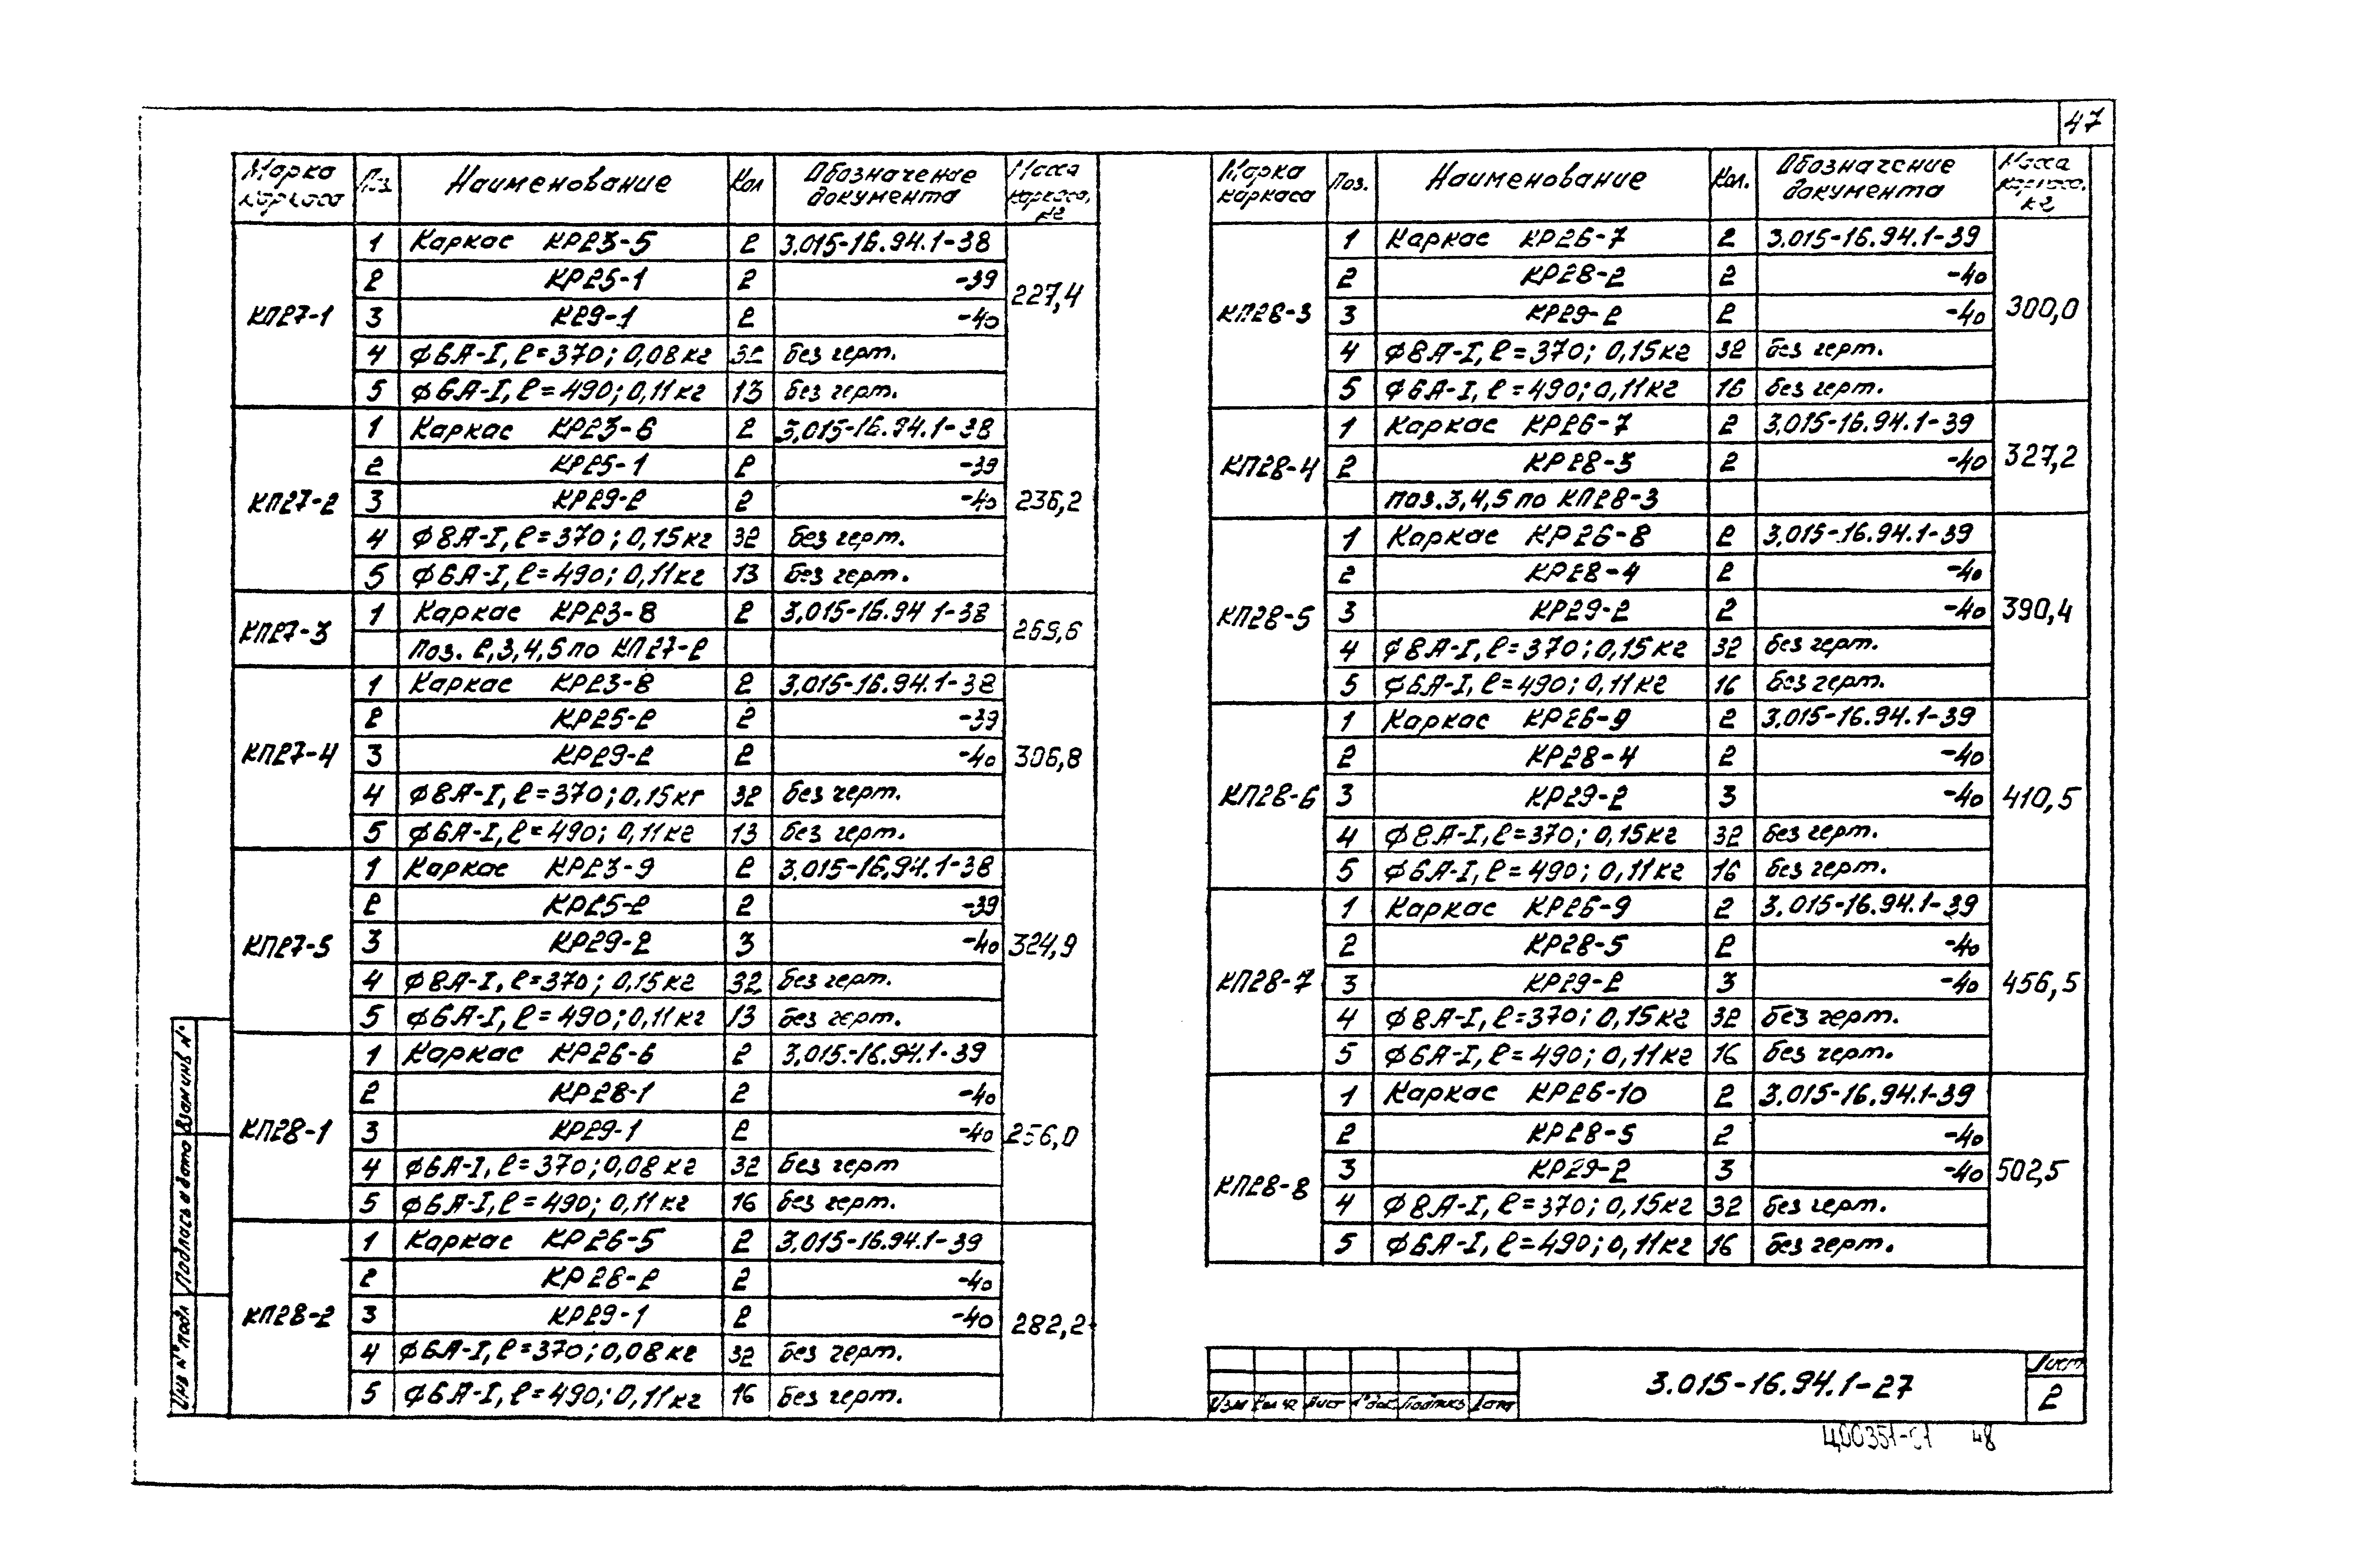 47
Марка каркаса Поз. Наименование Кол Обозначение документа Масса каркаса, кг
КП27-1 227,4
1 Каркас КР23-5 2 3.015-16.94.1-38
2 КР25-1 2 -39
3 К29-1 2 -40
4 ϕ6А-I, ℓ=370; 0,08кг 32 без черт.
5 ϕ6А-I, ℓ=490; 0,11кг 13 без черт.
КП27-2 236,2
1 Каркас КР23-6 2 3.015-16.94.1-38
2 КР25-1 2 -39
3 КР29-2 2 -40
4 ϕ8А-I, ℓ=370; 0,15кг 32 без черт.
5 ϕ6А-I, ℓ=490; 0,11кг 13 без черт.
КП27-3 269,6
1 Каркас КР23-8 2 3.015-16.94 1-38
Поз. 2,3,4,5 по КП27-2
КП27-4 306,8
1 Каркас КР23-8 2 3.015-16.94.1-38
2 КР25-2 2 -39
3 КР29-2 2 -40
4 ϕ8А-I, ℓ=370; 0,15кг 32 без черт.
5 ϕ6А-I, ℓ=490; 0,11кг 13 без черт.
КП27-5 324,9
1 Каркас КР23-9 2 3.015-16.94.1-38
2 КР25-2 2 -39
3 КР29-2 3 -40
4 ϕ8А-I, ℓ=370; 0,15кг 32 без черт.
5 ϕ6А-I, ℓ=490; 0,11кг 13 без черт.
КП28-1 256,0
1 Каркас КР26-6 2 3.015-16.94.1-39
2 КР28-1 2 -40
3 КР29-1 2 -40
4 ϕ6А-I, ℓ=370; 0,08кг 32 без черт
5 ϕ6А-I, ℓ=490; 0,11кг 16 без черт.
КП28-2 282,2
1 Каркас КР26-5 2 3.015-16.94.1-39
2 КР28-2 2 -40
3 КР29-1 2 -40
4 ϕ6А-I, ℓ=370; 0,08кг 32 без черт.
5 ϕ6А-I, ℓ=490; 0,11кг 16 без черт.
Марка каркаса Поз. Наименование Кол. Обозначение документа Масса каркаса, кг
КП28-3 300,0
1 Каркас КР26-7 2 3.015-16.94.1-39
2 КР28-2 2 -40
3 КР29-2 2 -40
4 ϕ8А-I, ℓ=370; 0,15кг 32 без черт.
5 ϕ6А-I, ℓ=490; 0,11кг 16 без черт.
КП28-4 327,2
1 Каркас КР26-7 2 3.015-16.94.1-39
2 КР28-3 2 -40
поз.3,4,5 по КП28-3
КП28-5 390,4
1 Каркас КР26-8 2 3.015-16.94.1-39
2 КР28-4 2 -40
3 КР29-2 2 -40
4 ϕ8А-I, ℓ=370; 0,15кг 32 без черт.
5 ϕ6А-I, ℓ=490; 0,11кг 16 без черт.
КП28-6 410,5
1 Каркас КР26-9 2 3.015-16.94.1-39
2 КР28-4 2 -40
3 КР29-2 3 -40
4 ϕ8А-I, ℓ=370; 0,15кг 32 без черт.
5 ϕ6А-I, ℓ=490; 0,11кг 16 без черт.
КП28-7 456,5
1 Каркас КР26-9 2 3.015-16.94.1-39
2 КР28-5 2 -40
3 КР29-2 3 -40
4 ϕ8А-I, ℓ=370; 0,15кг 32 без черт.
5 ϕ6А-I, ℓ=490; 0,11кг 16 без черт.
КП28-8 502,5
1 Каркас КР26-10 2 3.015-16.94.1-39
2 КР28-5 2 -40
3 КР29-2 3 -40
4 ϕ8А-I, ℓ=370; 0,15кг 32 без черт.
5 ϕ6А-I, ℓ=490; 0,11кг 16 без черт.
Инв № подл Подпись и дата Взам инв №
Изм Кол уч Лист № док Подпись Дата
3.015-16.94.1-27
Лист
2
Ц00351-01 48